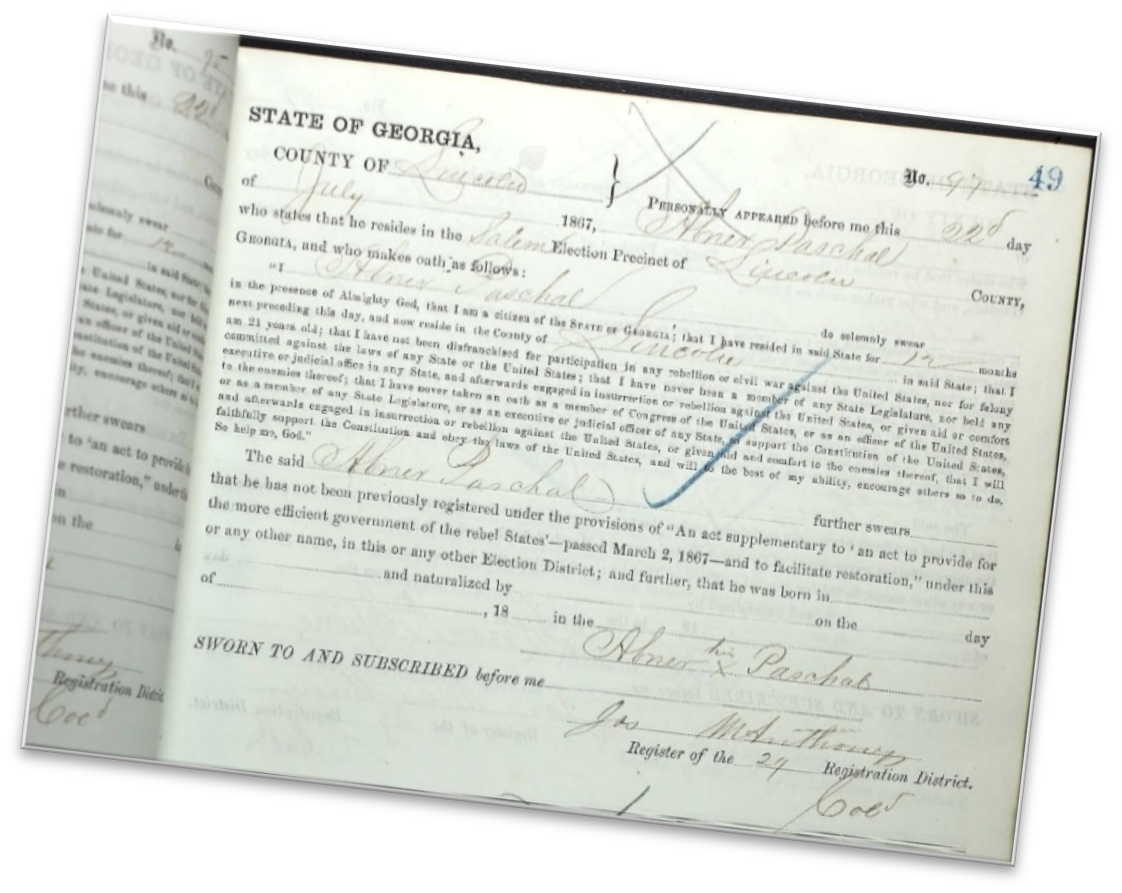 No. 95
so this 22d
Cou
olemnly swear
ate for 12
in said State;
United States, nor for
ate Legislature, nor hel
States, or given aid or
an officer of the United
nstitution of the United
the enemies thereof; that
ty, encourage others
rther swears
to 'an act to provide
e restoration," under
n
on the
Registration Distric
Cold
49
STATE OF GEORGIA,
COUNTY OF Lincoln } No. 97
PERSONALLY APPEARED before me this 22d day
of July 1867, Abner Paschal
who states that he resides in the Salem Election Precinct of Lincoln COUNTY,
GEORGIA, and who makes oath as follows:
"I Abner Paschal do solemnly swear
in the presence of Almighty God, that I am a citizen of the STATE OF GEORGIA; that I have resided in said State for 12 months
next preceding this day, and now reside in the County of Lincoln in said State; that I
am 21 years old; that I have not been disfranchised for participation in any rebellion or civil war against the United States, nor for felony
committed against the laws of any State or the United States; that I have never been a member of any State Legislature, nor held any
executive or judicial office in any State, and afterwards engaged in insurrection or rebellion against the United States, or given aid or comfort
to the enemies thereof; that I have never taken an oath as a member of Congress of the United States, or as an officer of the United States,
or as a member of any State Legislature, or as an executive or judicial officer of any State, to support the Constitution of the United States,
and afterwards engaged in insurrection or rebellion against the United States, or given aid and comfort to the enemies thereof, that I will
faithfully support the Constitution and obey the laws of the United States, and will to the best of my ability, encourage others so to do.
So help me, God."
The said Abner Paschal further swears
that he has not been previously registered under the provisions of "An act supplementary to 'an act to provide for
the more efficient government of the rebel States'—passed March 2, 1867—and to facilitate restoration," under this
or any other name, in this or any other Election District; and further, that he was born in
of and naturalized by on the day
, 18 in the
Abner his x Paschal
SWORN TO AND SUBSCRIBED before me
Jos McAnthony
Register of the 29 Registration District.
Cold